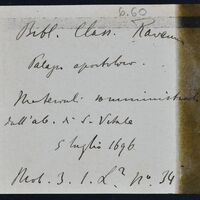 6.60
Bibl. Class. Ravenna
Palazzo apostolico.
Materiali somministrati
dall'ab. di S. Vitale
5 luglio 1696
Mob. 3. 1. L.ª nº 34